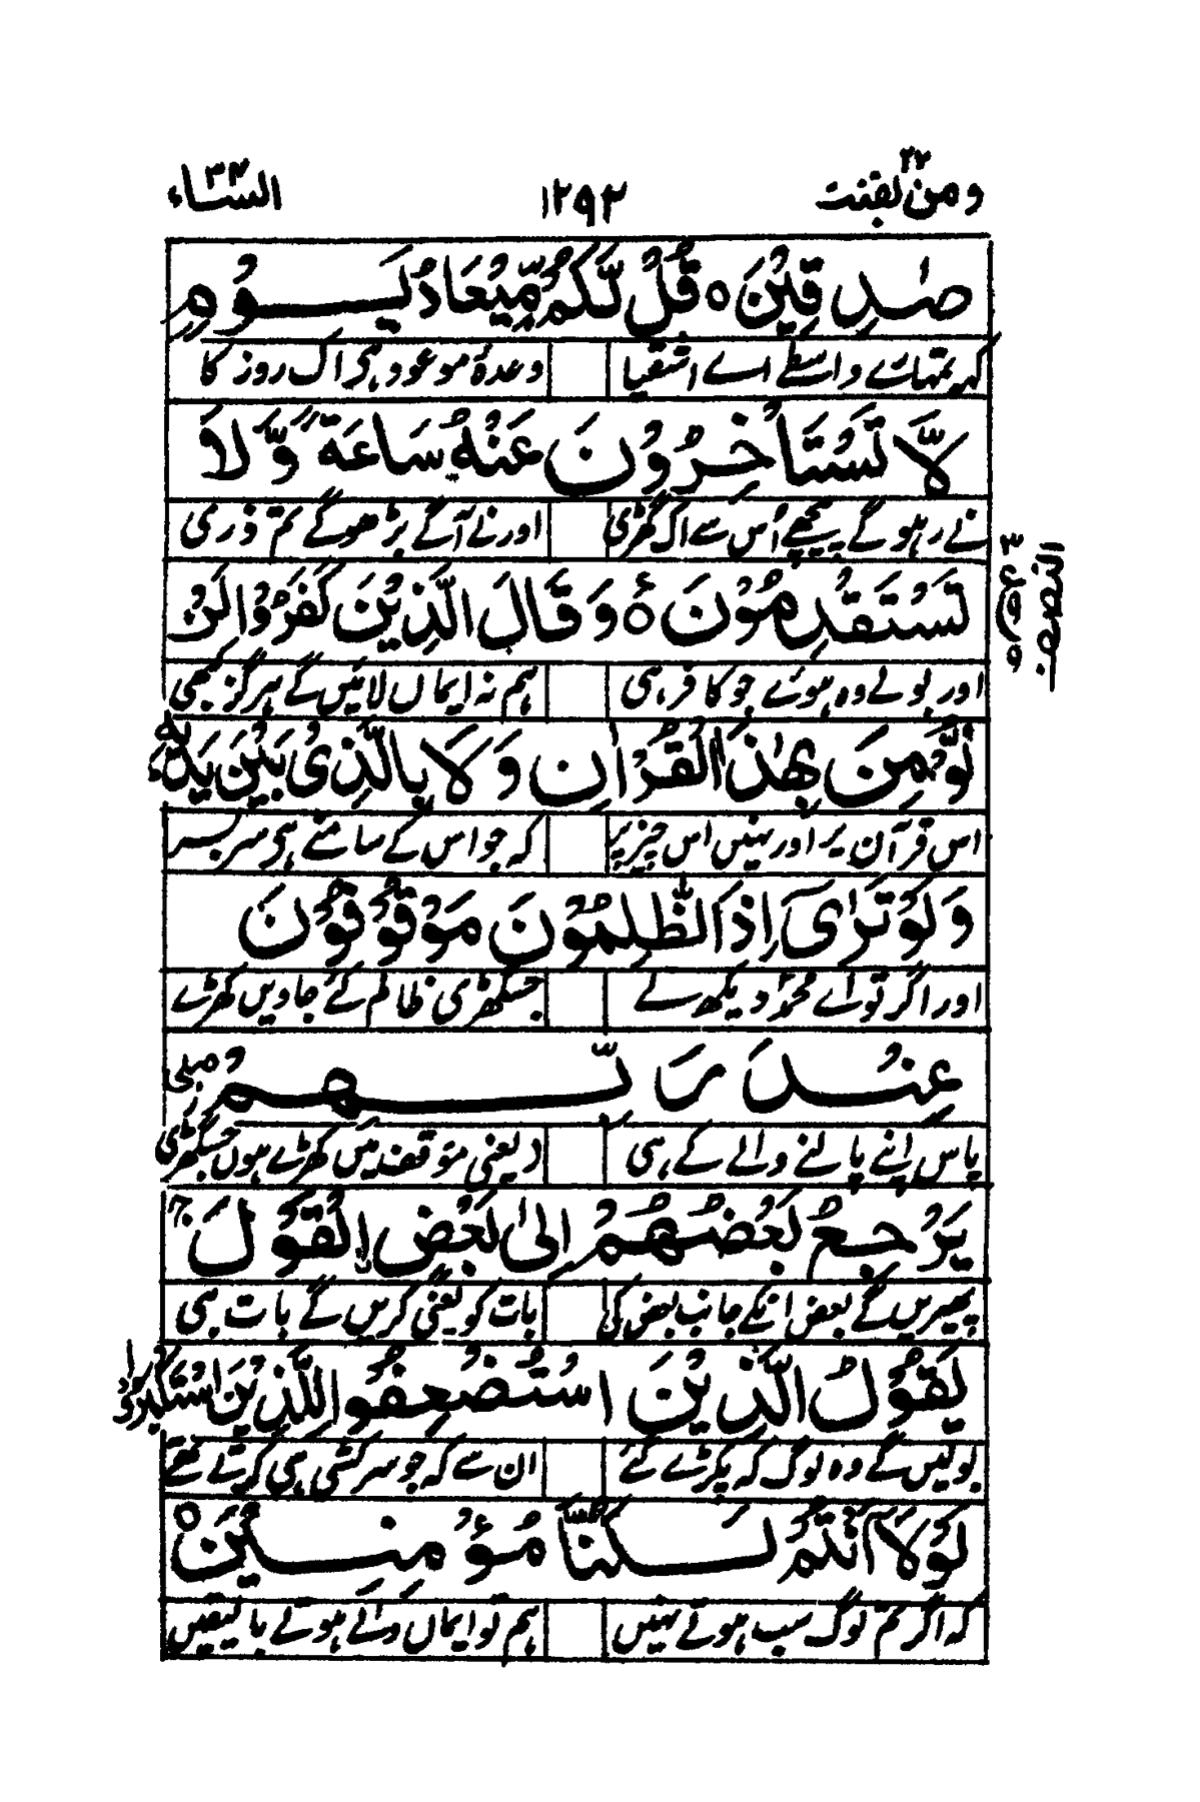 ومن یقنت ۲۲
۱۲۹۲
السبا ۳۴
صٰدِقِيْنَ ○ قُلْ لَّكُمْ مِّيْعَادُ يَوْمٍ
کہہ تمہارے واسطے اے اشقیا وعدۂ موعود ہی اک روز کا
لَّا تَسْتَاْخِرُوْنَ عَنْهُ سَاعَةً وَّلَا
نے رہو گے پیچھے اُس سے اک گھڑی اور نے آگے بڑھو گے تم ذری
تَسْتَقْدِمُوْنَ ○ وَقَالَ الَّذِيْنَ كَفَرُوْا لَنْ
اور بولے وہ ہوئے جو کافر ہی ہم نہ ایماں لائیں گے ہرگز کبھی
نُّؤْمِنَ بِهٰذَا الْقُرْاٰنِ وَلَا بِالَّذِيْ بَيْنَ يَدَيْهِ
اس قرآن پر اور نہیں اس چیز پر کہ جو اس کے سامنے ہی سر بسر
وَلَوْ تَرٰٓى اِذِ الظّٰلِمُوْنَ مَوْقُوْفُوْنَ
اور اگر تو اے محمدؐ دیکھ لے جسگھڑی ظالم کئے جاویں کھڑے
عِنْدَ رَبِّهِمْ
پاس اپنے پالنے والے کے ہی یعنی موقف میں کھڑے ہوں جسگھڑی
يَرْجِعُ بَعْضُهُمْ اِلٰى بَعْضِ ࣙالْقَوْلَ ج
پھیریں گے بعض انکے جانب بعض کی بات کو یعنی کریں گے بات ہی
يَقُوْلُ الَّذِيْنَ اسْتُضْعِفُوْا لِلَّذِيْنَ اسْتَكْبَرُوْا
بولیں گے وہ لوگ کہ پکڑے گئے ان سے کہ جو سرکشی ہی کرتے تھے
لَوْلَآ اَنْتُمْ لَكُنَّا مُؤْمِنِيْنَ ○
کہ اگر تم لوگ سب ہوتے نہیں ہم تو ایماں والے ہوتے بالیقیں
النصف